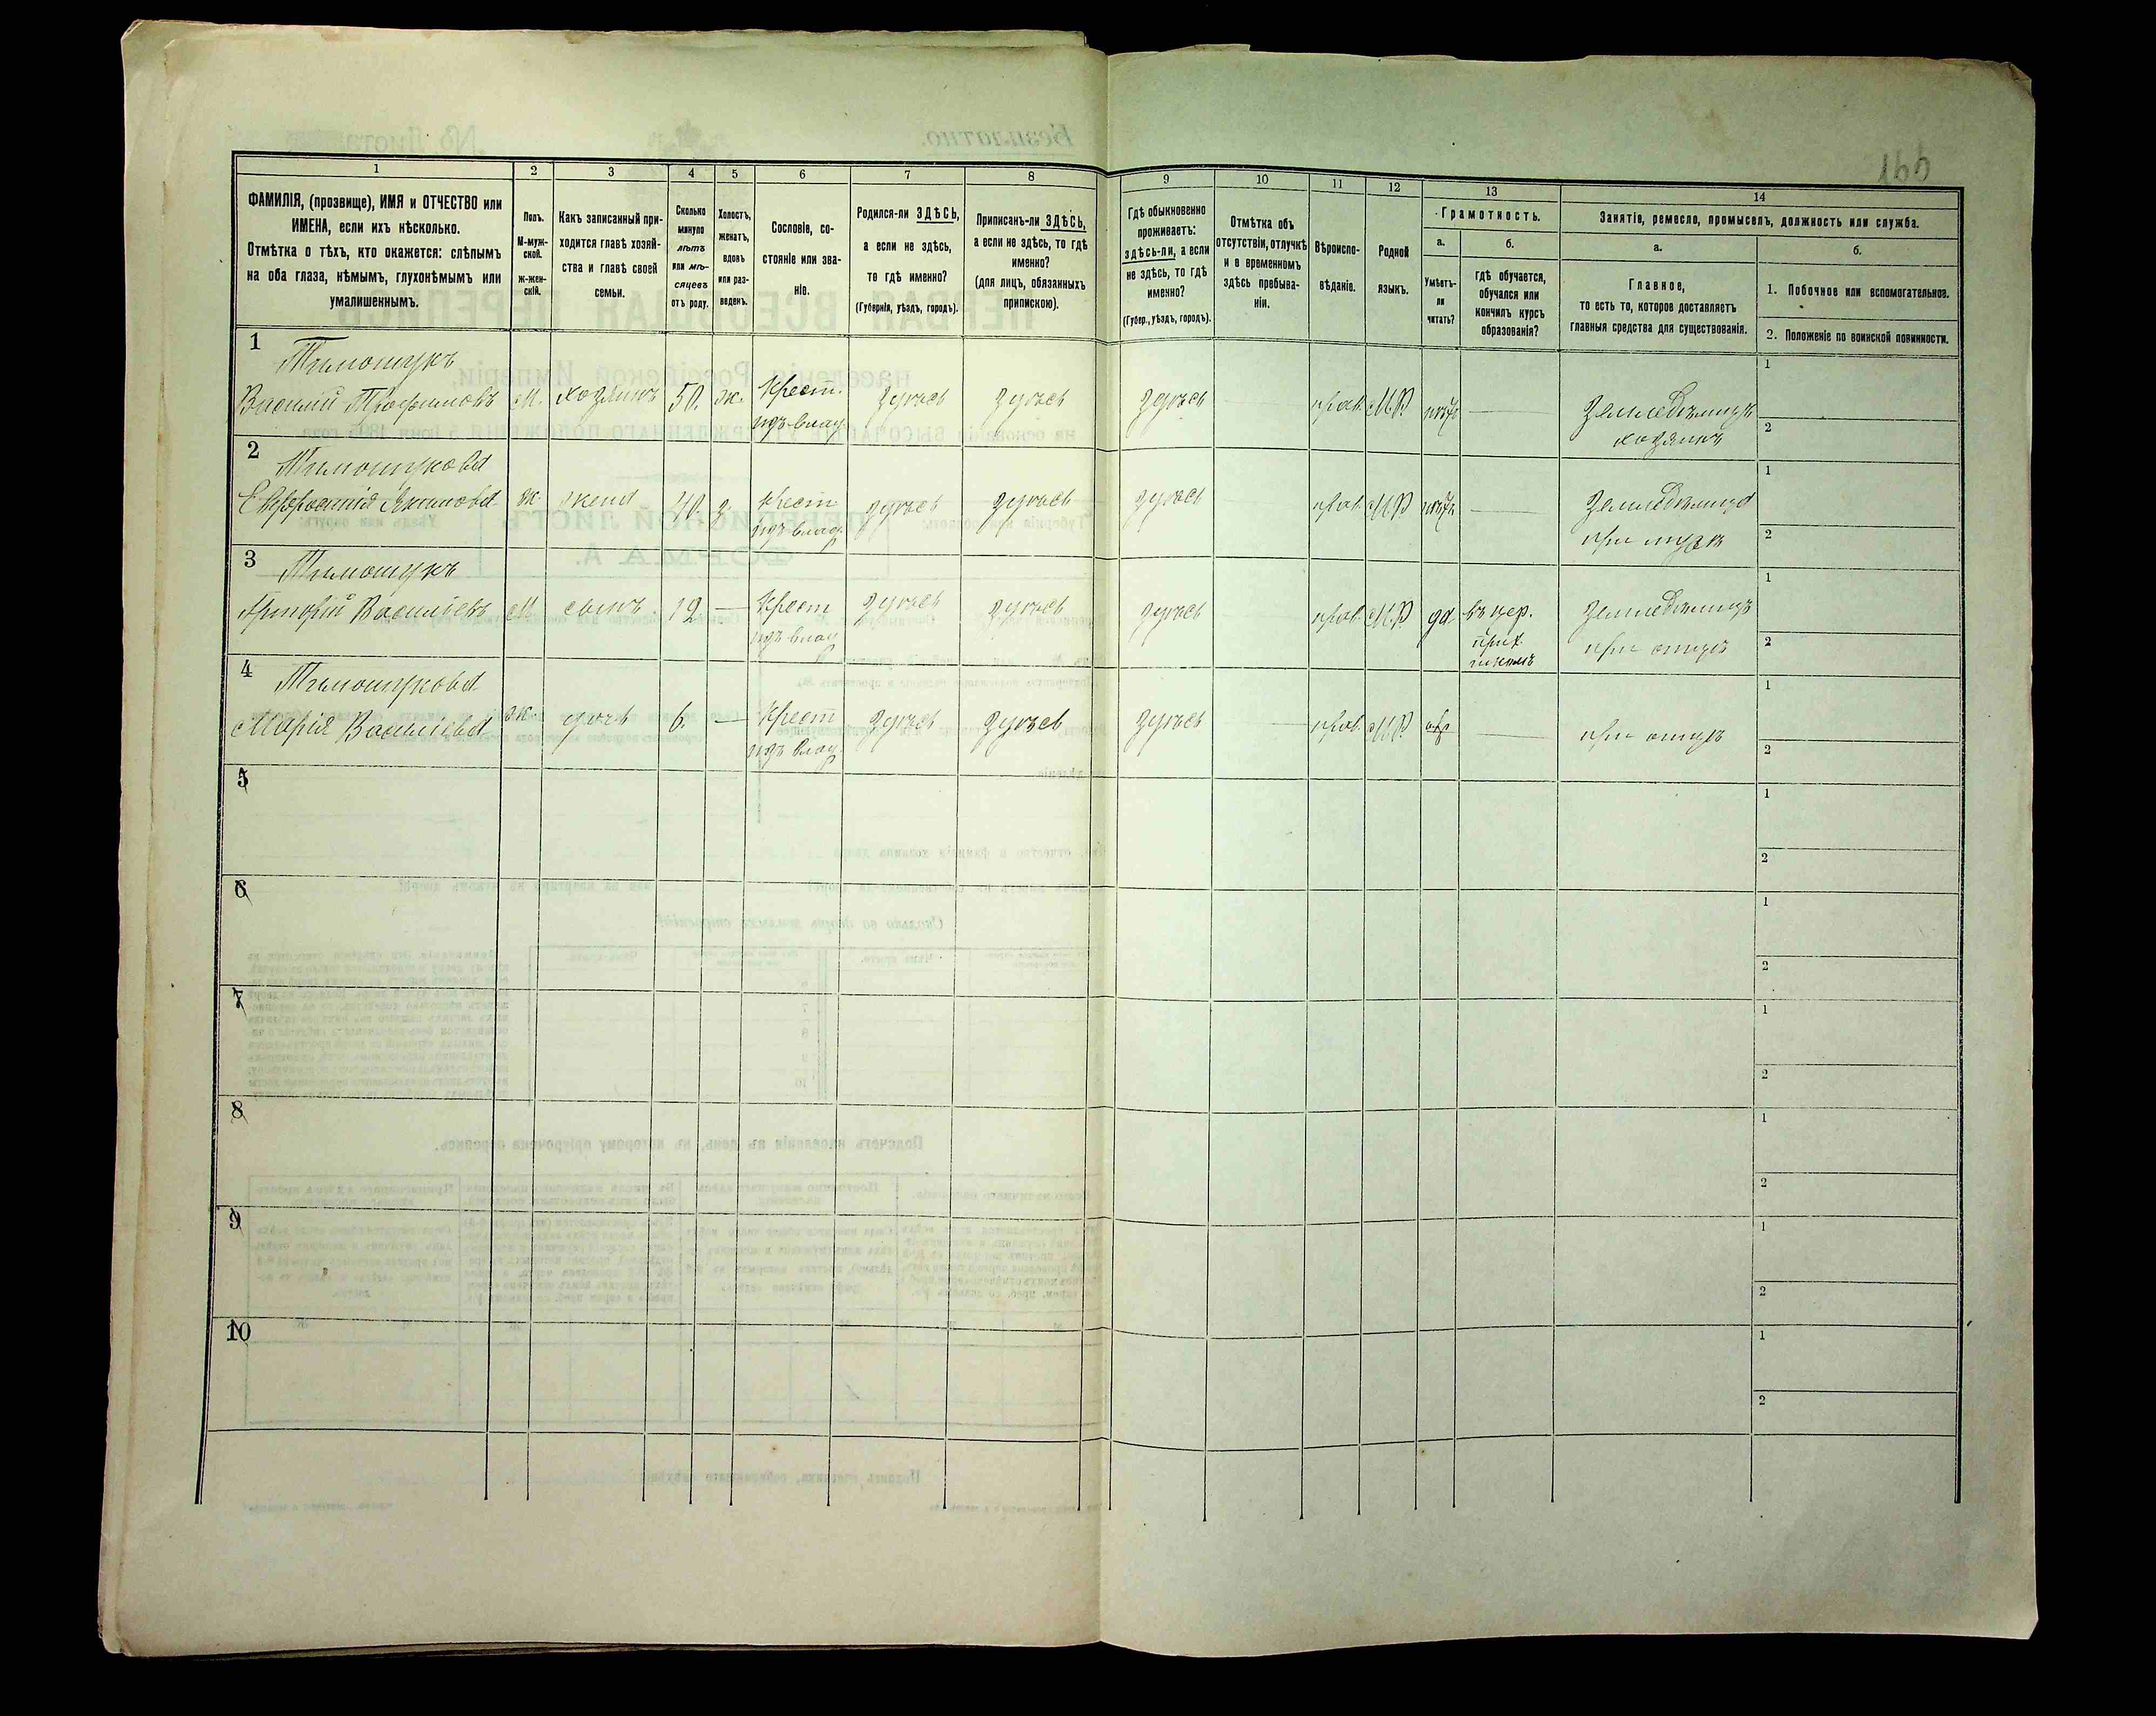 164
1
2
3
4
5
6
7
8
9
10
11
12
13
14
ФАМИЛІЯ, (прозвище), ИМЯ и ОТЧЕСТВО или
ИМЕНА, если ихъ нѣсколько.
Отмѣтка о тѣхъ, кто окажется: слѣпымъ
на оба глаза, нѣмымъ, глухонѣмымъ или
умалишеннымъ.
Полъ.
М-муж-
ской.
Ж-жен-
скій.
Какъ записанный при-
ходится главѣ хозяй-
ства и главѣ своей
семьи.
Сколько
минуло
лѣтъ
или мѣ-
сяцевъ
отъ роду.
Холостъ,
женатъ,
вдовъ
или раз-
веденъ.
Сословіе, со-
стояніе или зва-
ніе.
Родился-ли ЗДѢСЬ,
а если не здѣсь,
то гдѣ именно?
(Губернія, уѣздъ, городъ).
Приписанъ-ли ЗДѢСЬ,
а если не здѣсь, то гдѣ
именно?
(для лицъ, обязанныхъ
припискою).
Гдѣ обыкновенно
проживаетъ:
здѣсь-ли, а если
не здѣсь, то гдѣ
именно?
(Губер., уѣздъ, городъ).
Отмѣтка объ
отсутствіи, отлучкѣ
и о временномъ
здѣсь пребыва-
ніи.
Вѣроиспо-
вѣданіе.
Родной
языкъ.
Грамотность.
а.
Умѣетъ-
ли
читать?
б.
гдѣ обучается,
обучался или
кончилъ курсъ
образованія?
Занятіе, ремесло, промыселъ, должность или служба.
а.
Главное,
то есть то, которое доставляетъ
главныя средства для существованія.
б.
1. Побочное или вспомогательное.
2. Положеніе по воинской повинности.
1
Тимощукъ
Василій Трофимовъ м. хозяинъ 50. ж. Крест. здѣсь здѣсь здѣсь прав. М.Р. нѣтъ Земледѣлецъ
изъ влад. хозяинъ
1
2
2
Тимощукова
Евфросинія Якимова ж. жена 40. з. Крест. здѣсь здѣсь здѣсь прав. М.Р. нѣтъ Земледѣлица
изъ влад. при мужѣ
1
2
3
Тимощукъ
Григорій Василіевъ м. сынъ. 12. — Крест здѣсь здѣсь здѣсь прав. М.Р. да въ цер. Земледѣлецъ
изъ влад. прих. при отцѣ
школѣ
1
2
4
Тимощукова
Марія Василіева ж. дочь 6. — Крест здѣсь здѣсь здѣсь прав. М.Р. при отцѣ
изъ влад.
1
2
5
1
2
6
1
2
7
1
2
8
1
2
9
1
2
10
1
2